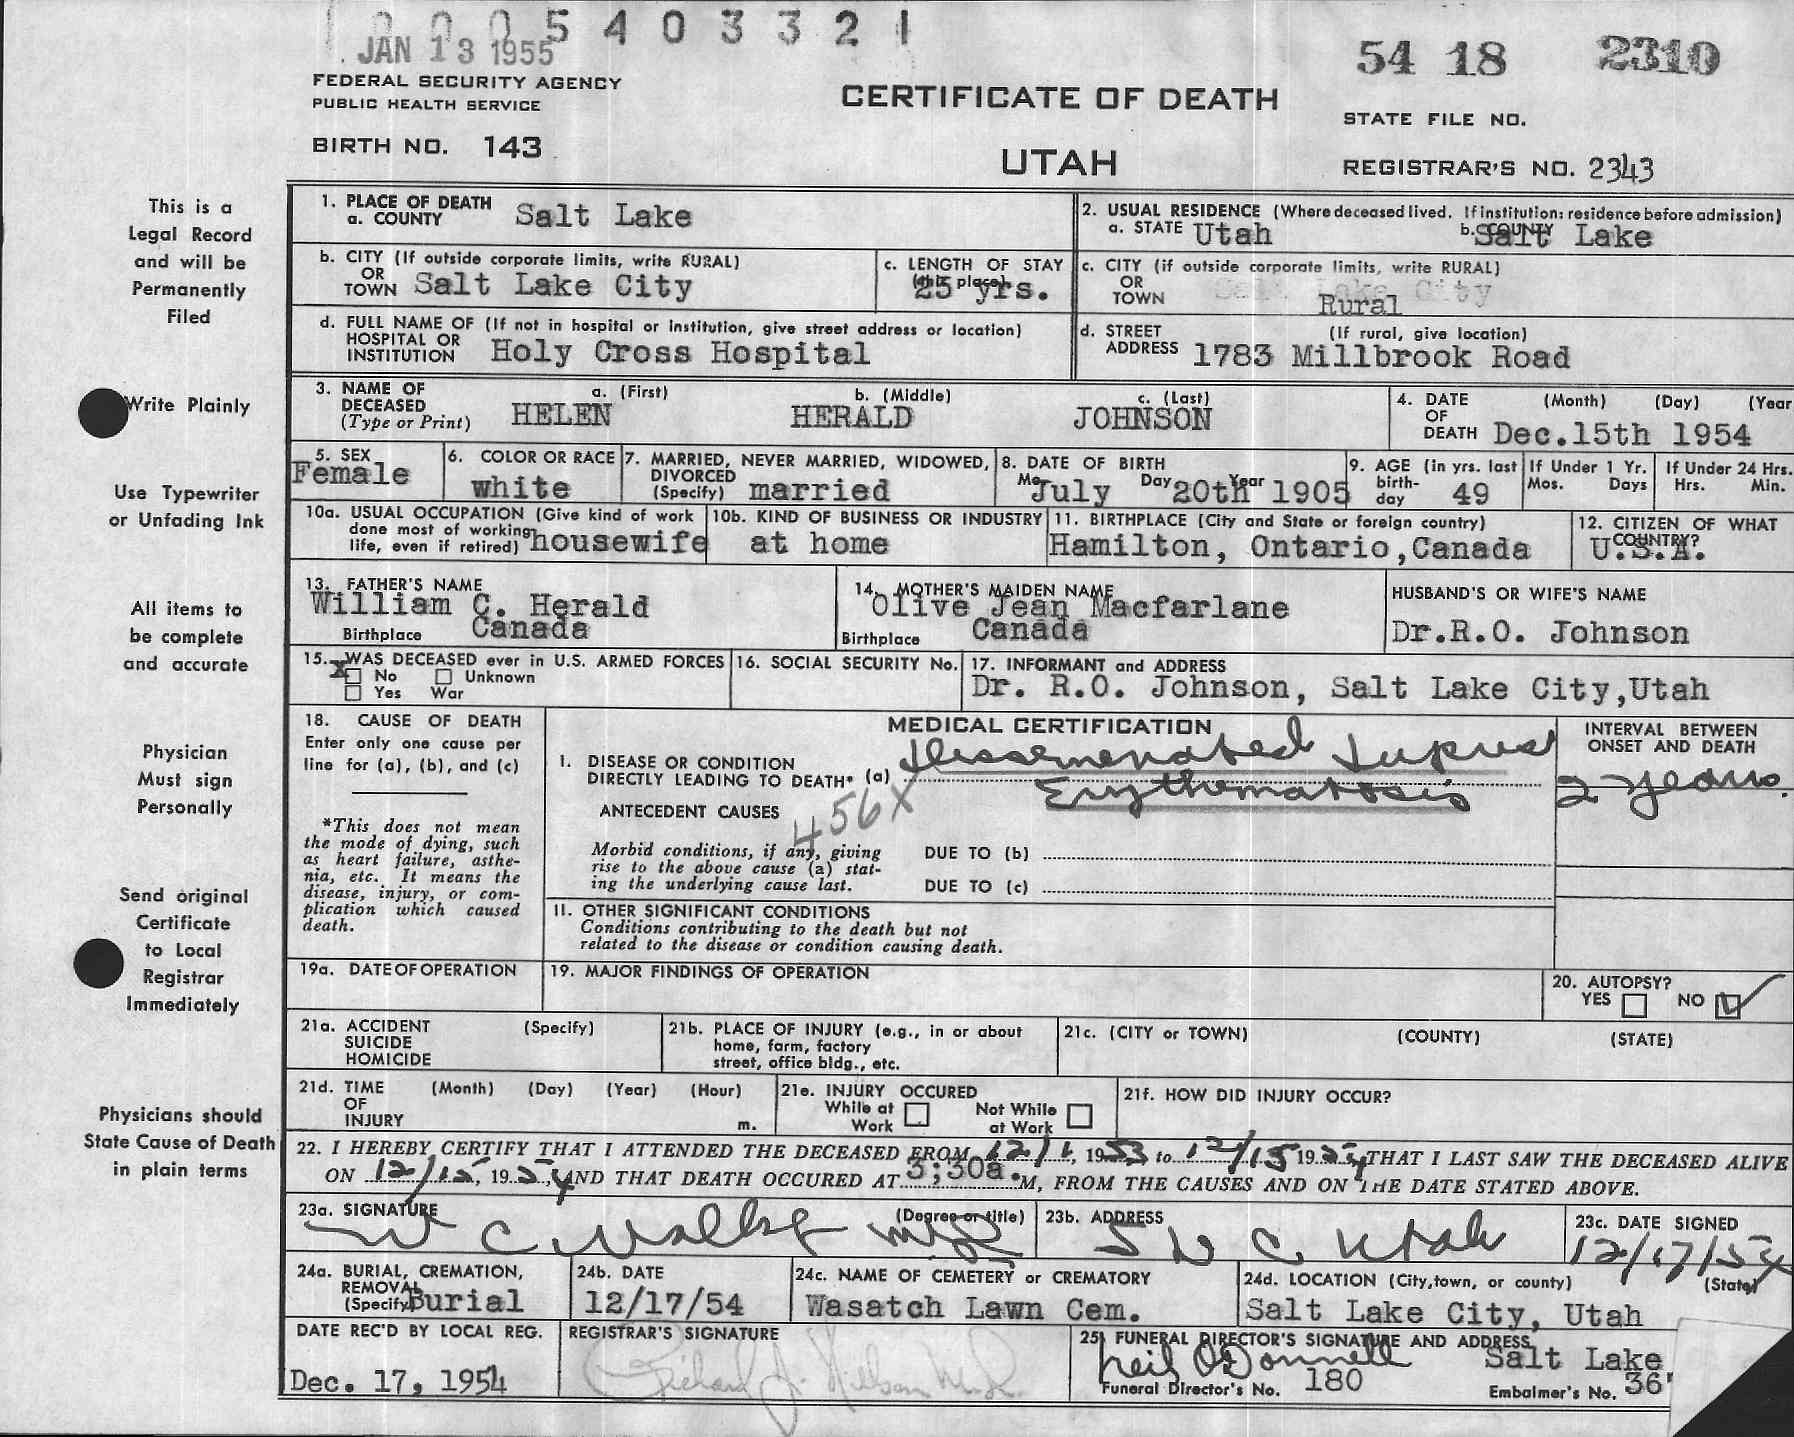 1 0 0 0 5 4 0 3 3 2 1
JAN 13 1955
54 18 2310
FEDERAL SECURITY AGENCY
PUBLIC HEALTH SERVICE
CERTIFICATE OF DEATH
STATE FILE NO.
BIRTH NO. 143
UTAH
REGISTRAR'S NO. 2343
This is a
Legal Record
and will be
Permanently
Filed
Write Plainly
Use Typewriter
or Unfading Ink
All items to
be complete
and accurate
Physician
Must sign
Personally
Send original
Certificate
to Local
Registrar
Immediately
Physicians should
State Cause of Death
in plain terms
1. PLACE OF DEATH
a. COUNTY Salt Lake
2. USUAL RESIDENCE (Where deceased lived. If institution: residence before admission)
a. STATE Utah b. COUNTY Salt Lake
b. CITY (If outside corporate limits, write RURAL)
OR
TOWN Salt Lake City
c. LENGTH OF STAY
(in this place) 25 yrs.
c. CITY (if outside corporate limits, write RURAL)
OR Salt Lake City
TOWN Rural
d. FULL NAME OF (If not in hospital or institution, give street address or location)
HOSPITAL OR
INSTITUTION Holy Cross Hospital
d. STREET (If rural, give location)
ADDRESS 1783 Millbrook Road
3. NAME OF DECEASED (Type or Print)
a. (First) HELEN
b. (Middle) HERALD
c. (Last) JOHNSON
4. DATE OF DEATH (Month) (Day) (Year
Dec.15th 1954
5. SEX Female
6. COLOR OR RACE white
7. MARRIED, NEVER MARRIED, WIDOWED,
DIVORCED
(Specify) married
8. DATE OF BIRTH
Mo July Day 20th Year 1905
9. AGE (in yrs. last
birth-
day 49
If Under 1 Yr.
Mos. Days
If Under 24 Hrs.
Hrs. Min.
10a. USUAL OCCUPATION (Give kind of work
done most of working
life, even if retired) housewife
10b. KIND OF BUSINESS OR INDUSTRY
at home
11. BIRTHPLACE (City and State or foreign country)
Hamilton, Ontario,Canada
12. CITIZEN OF WHAT
COUNTRY? U.S.A.
13. FATHER'S NAME
William C. Herald
Birthplace Canada
14. MOTHER'S MAIDEN NAME
Olive Jean Macfarlane
Birthplace Canada
HUSBAND'S OR WIFE'S NAME
Dr.R.O. Johnson
15. WAS DECEASED ever in U.S. ARMED FORCES
X No Unknown
Yes War
16. SOCIAL SECURITY No.
17. INFORMANT and ADDRESS
Dr. R.O. Johnson, Salt Lake City,Utah
18. CAUSE OF DEATH
Enter only one cause per
line for (a), (b), and (c)
*This does not mean
the mode of dying, such
as heart failure, asthe-
nia, etc. It means the
disease, injury, or com-
plication which caused
death.
MEDICAL CERTIFICATION
I. DISEASE OR CONDITION
DIRECTLY LEADING TO DEATH* (a) Dissemenated Lupus
Erythmatosis
456X
ANTECEDENT CAUSES
Morbid conditions, if any, giving
rise to the above cause (a) stat-
ing the underlying cause last.
DUE TO (b)
DUE TO (c)
II. OTHER SIGNIFICANT CONDITIONS
Conditions contributing to the death but not
related to the disease or condition causing death.
INTERVAL BETWEEN
ONSET AND DEATH
2 years.
19a. DATE OF OPERATION
19. MAJOR FINDINGS OF OPERATION
20. AUTOPSY?
YES NO
21a. ACCIDENT (Specify)
SUICIDE
HOMICIDE
21b. PLACE OF INJURY (e.g., in or about
home, farm, factory
street, office bldg., etc.
21c. (CITY or TOWN) (COUNTY) (STATE)
21d. TIME (Month) (Day) (Year) (Hour)
OF
INJURY m.
21e. INJURY OCCURED
While at Work
Not While at Work
21f. HOW DID INJURY OCCUR?
22. I HEREBY CERTIFY THAT I ATTENDED THE DECEASED FROM 12/1, 1953 to 12/15 1954, THAT I LAST SAW THE DECEASED ALIVE
ON 12/15, 1954, AND THAT DEATH OCCURED AT 3;30a.M, FROM THE CAUSES AND ON THE DATE STATED ABOVE.
23a. SIGNATURE (Degree or title)
W C. Walker MD
23b. ADDRESS
S L C. Utah
23c. DATE SIGNED
12/17/54
24a. BURIAL, CREMATION,
REMOVAL
(Specify) Burial
24b. DATE
12/17/54
24c. NAME OF CEMETERY or CREMATORY
Wasatch Lawn Cem.
24d. LOCATION (City,town, or county) (State)
Salt Lake City, Utah
DATE REC'D BY LOCAL REG.
Dec. 17, 1954
REGISTRAR'S SIGNATURE
Richard J. Nelson M.D.
25. FUNERAL DIRECTOR'S SIGNATURE AND ADDRESS
Neil O'Donnell Salt Lake
Funeral Director's No. 180 Embalmer's No. 367